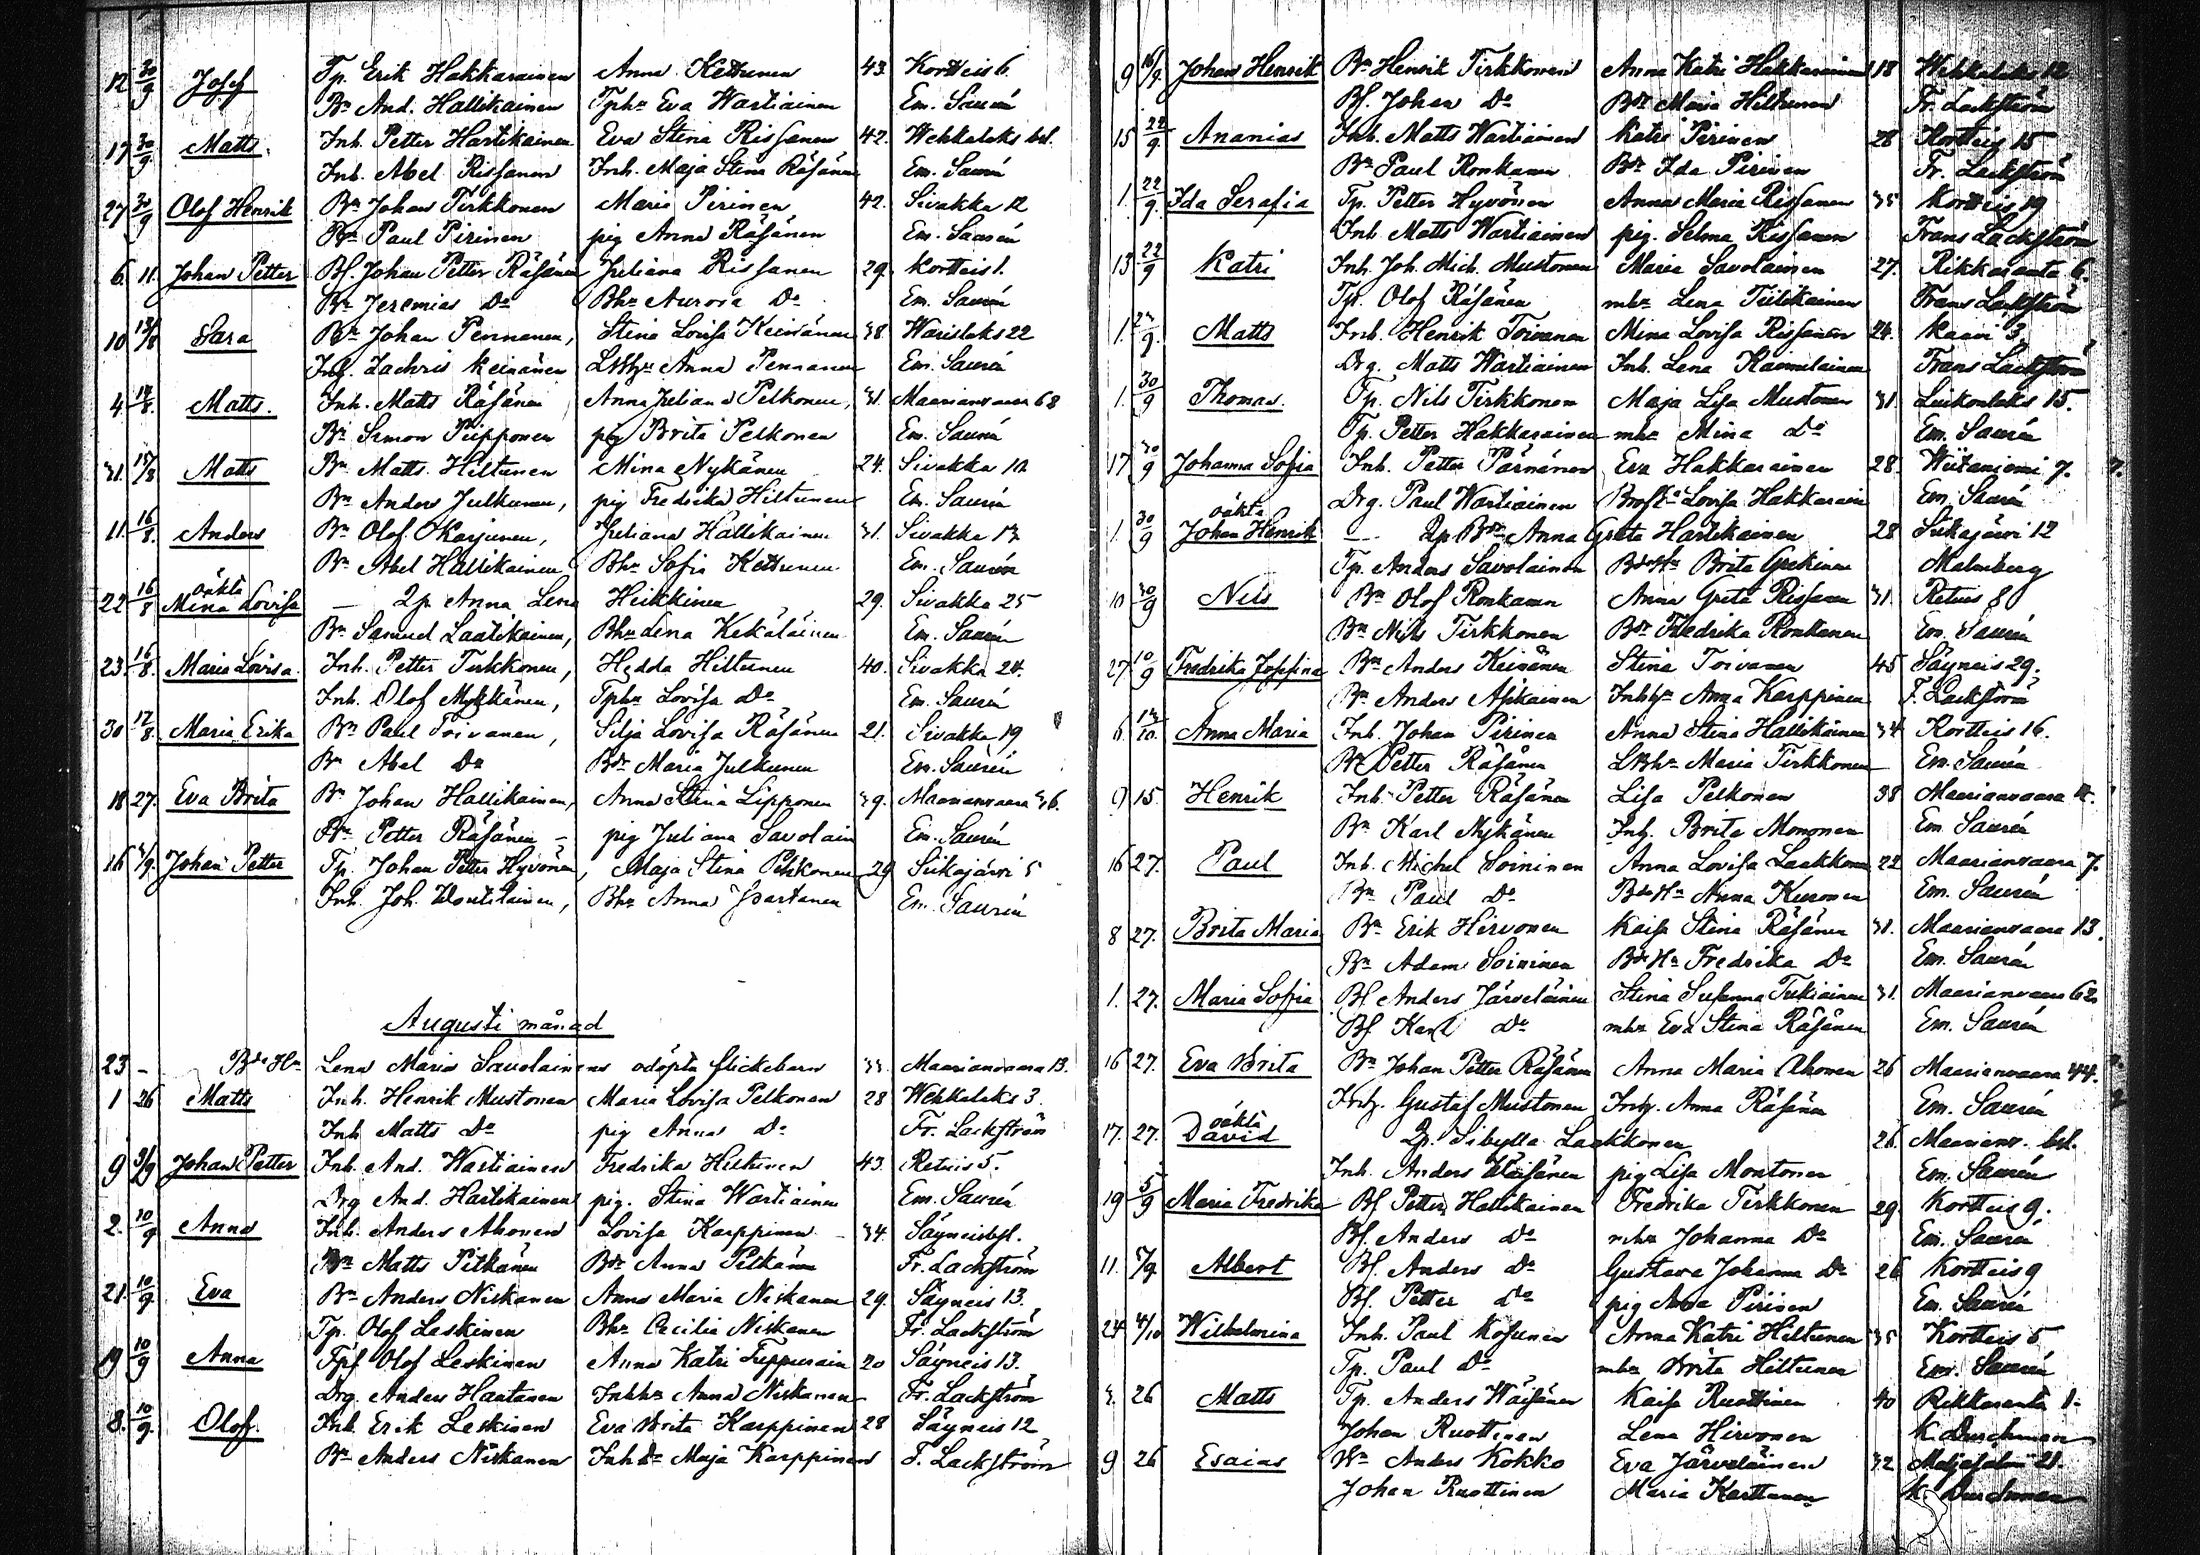 12 30/9 Josef Tp. Erik Hakkarainen Anna Kettunen 43. Kortteis 6.
Bn And. Hallikainen Tphr Eva Wartiainen Em. Saurén
17 30/9 Matts. Inh. Petter Hartikainen Eva Stina Rissanen 42. Wehkalaks bol.
Inh. Abel Rissanen Inh. Maja Stina Räsänen Em. Saurén
27 30/9 Olof Henrik Bn Johan Tirkkonen Maria Pirinen 42. Sivakka 12
Bn Paul Pirinen pig Anna Räsänen Em. Saurén
6 11. Johan Petter Bf. Johan Petter Räsänen Juliana Rissanen 29. Kortteis 1.
Bn Jeremias Do Bhr Aurora Do Em. Saurén
10 13/8 Sara Bn Johan Pennanen, Stina Lovisa Keinänen 38. Warislaks 22
Inh. Zachris Keinänen Lbhr Anna Pennanen Em. Saurén
4. 14/8. Matts. Inh. Matts Räsänen Anna Juliana Pelkonen, 31. Maarianvaara 68
Bn Simon Piipponen pig Brita Pelkonen Em. Saurén
31. 15/8 Matts Bn Matts Hiltunen Mina Nykänen 24. Sivakka 12
Bn Anders Julkunen, pig Fredrika Hiltunen Em. Saurén
11. 16/8. Anders Bn Olof Karjunen, Juliana Hallikainen 31. Sivakka 13
Bn Abel Hallikainen Bhr Sofia Kettunen Em. Saurén
22 16/8 oäkta Mina Lovisa — Qp. Anna Lena Heikkinen 29. Sivakka 25
Bn Samuel Laatikainen, Bhr Lena Kekäläinen Em. Saurén
23. 16/8. Maria Lovisa. Inh. Petter Tirkkonen, Hedda Hiltunen 40. Sivakka 24.
Inh. Olof Mykkänen, Tphr Lovisa Do Em. Saurén
30 17/8. Maria Erika Bn Paul Toivanen, Silja Lovisa Räsänen 21. Sivakka 19
Bn Abel Do Bdr Maria Julkunen Em. Saurén
18 27. Eva Brita Bn Johan Hallikainen, Anna Stina Lipponen 39. Maarianvaara 36.
Bn Petter Räsänen — pig Juliana Savolain Em. Saurén
16 3/9. Johan Petter Tp. Johan Petter Hyvönen, Maja Stina Pekkonen 29 Siikajärvi 5
Inh. Joh. Voutilainen, Bhr Anna Partanen Em. Saurén
Augusti månad
23 - Bdr Hr Lena Maria Savolainens odöpta flickebarn 33. Maarianvaara 13.
1 26 Matts Inh. Henrik Mustonen Maria Lovisa Pelkonen 28 Wehkalaks 3.
Inh Matts Do pig Anna Do Fr. Lackström
9 3/9 Johan Petter Inh. And. Wartiainen Fredrika Hiltunen 43. Retuis 5.
Drg And. Hartikainen pig. Stina Wartiainen Em. Saurén
2. 10/9 Anna Inh. Anders Ahonen Lovisa Karppinen 34. Säyneisbol.
Bn Matts Pitkänen Bdr Anna Pitkänen Fr. Lackström
21. 10/9. Eva Bn Anders Niskanen Anna Maria Niskanen 29. Säyneis 13.
Tp. Olof Laskinen Bhr Cecilia Niskanen Fr. Lackström
19 10/9 Anna Tpf Olof Leskinen Anna Katri Tuppurain 20 Säyneis 13.
Drg. Anders Hautanen Inhhr Anna Niskanen Fr. Lackström
8. 10/9. Olof. Inh. Erik Leskinen Eva Brita Karppinen 28 Säyneis 12
Bn Anders Niskanen Inh Dr Maja Karppinen F. Lackström
9 16/9. Johan Henrik Bn Henrik Tirkkonen Anna Katri Hakkarainen 18 Wehkalaks 12
Bf. Johan Do Bdr Maria Hiltunen Fr. Lackström
15 22/9. Ananias Inh. Matts Wartiainen Katri Pirinen 28 Kortteis 15
Bn Paul Ronkanen Bdr Ida Pirinen Fr. Lackström
1. 22/9. Ida Serafia Tp. Petter Hyvönen Anna Maria Rissanen 35 Kortteis 19
Inh. Matts Wartiainen pig. Selma Rissanen Frans Lackström
13 22/9 Katri Inh. Joh. Mich. Mustonen Maria Savolainen 27. Rikkaranta 6.
Tp. Olof Räsänen mhr Lena Tiilikainen Frans Lackström
1. 24/9. Matts Inh. Henrik Toivanen Mina Lovisa Rissanen 24. Kaavi 3.
Drg. Matts Wartiainen Inh. Lena Kaunulainen Frans Lackström
1. 30/9 Thomas Tp. Nils Tirkkonen Maja Lisa Mustonen 31 Luikonlaks 15.
Tp. Petter Hakkarainen mhr Mina Do Em. Saurén
17 30/9 Johanna Sofia Inh. Petter Pärnänen Eva Hakkarainen 28. Wiitaniemi 7. 7.
Drg. Paul Wartiainen Lovisa Hakkarain Em. Saurén
1. 30/9 oäkta Johan Henrik — Qp Bdr Anna Greta Hartikainen 28 Siikajärvi 12
Tp. Anders Savolainen Bdr Hr Brita Malmberg
10 30/9 Nils Bn Olof Ronkanen Anna Greta Rissanen 31. Retuis 8
Bn Nils Tirkkonen Bdr Fredrika Ronttanen Em. Saurén
27 10/9 Fredrika Josefina Bn Anders Keinänen Stina Toivanen 45 Säyneis 29.
Bn Anders Asikainen Inhhr Anna Karppinen F. Lackström
6. 14/10. Anna Maria Inh. Johan Pirinen Anna Stina Hallikainen 34 Kortteis 16.
Bn Petter Räsänen Lbhr Maria Tirkkonen Em. Saurén
9 15. Henrik Inh. Petter Räsänen Lisa Pelkonen 38 Maarianvaara 4.
Bn Karl Nykänen Inh. Brita Mononen Em Saurén
16 27. Paul Inh. Michel Soininen Anna Lovisa Laakkonen 22 Maarianvaara 7.
Bn Paul Do Bdr Hr Anna Kuronen Em. Saurén
8 27. Brita Maria Bn Erik Hirvonen Kaisa Stina Räsänen 31. Maarianvaara 13.
Bn Adam Soininen Bdr Hr Fredrika Do Em. Saurén
1. 27. Maria Sofia Bf Anders Järveläinen Stina Susanna Tukiainen 31. Maarianvaara 62
Bf Karl Do mhr Eva Stina Räsänen Em. Saurén
16 27. Eva Brita Bn Johan Petter Räsänen Anna Maria Ahonen 26 Maarianvaara 44.
Inh. Gustaf Mustonen Inh. Anna Räsänen Em. Saurén
17. 27. oäkta David Qp. Sibylla Laakkonen 26. Maarianv. bol.
Inh. Anders Väisänen pig Lisa Montonen Em. Saurén
19 5/9 Maria Fredrika Bf Petter Hallikainen Fredrika Tirkkonen 29 Kortteis 9.
Bf. Anders Do mhr Johanna Do Em. Saurén
11. 7/9. Albert Bf. Anders Do Gustava Johanna Do 26 Kortteis 9
Bf. Petter Do pig Anna Pirinen Em. Saurén
24 4/10 Wilhelmina Inh. Paul Kosunen Anna Katri Hiltunen 35 Kortteis 5
Tp. Paul Do mhr Brita Hiltunen Em. Saurén
3. 26 Matts Tp. Anders Wäisänen Kaisa Ruottinen 40 Rikkaranta 1.
Johan Ruottinen Lena Hirvonen K. Duschman
9 26 Esaias Bn Anders Kokko Eva Järveläinen 32 21.
Johan Ruottinen Maria Karttunen K. Duschman